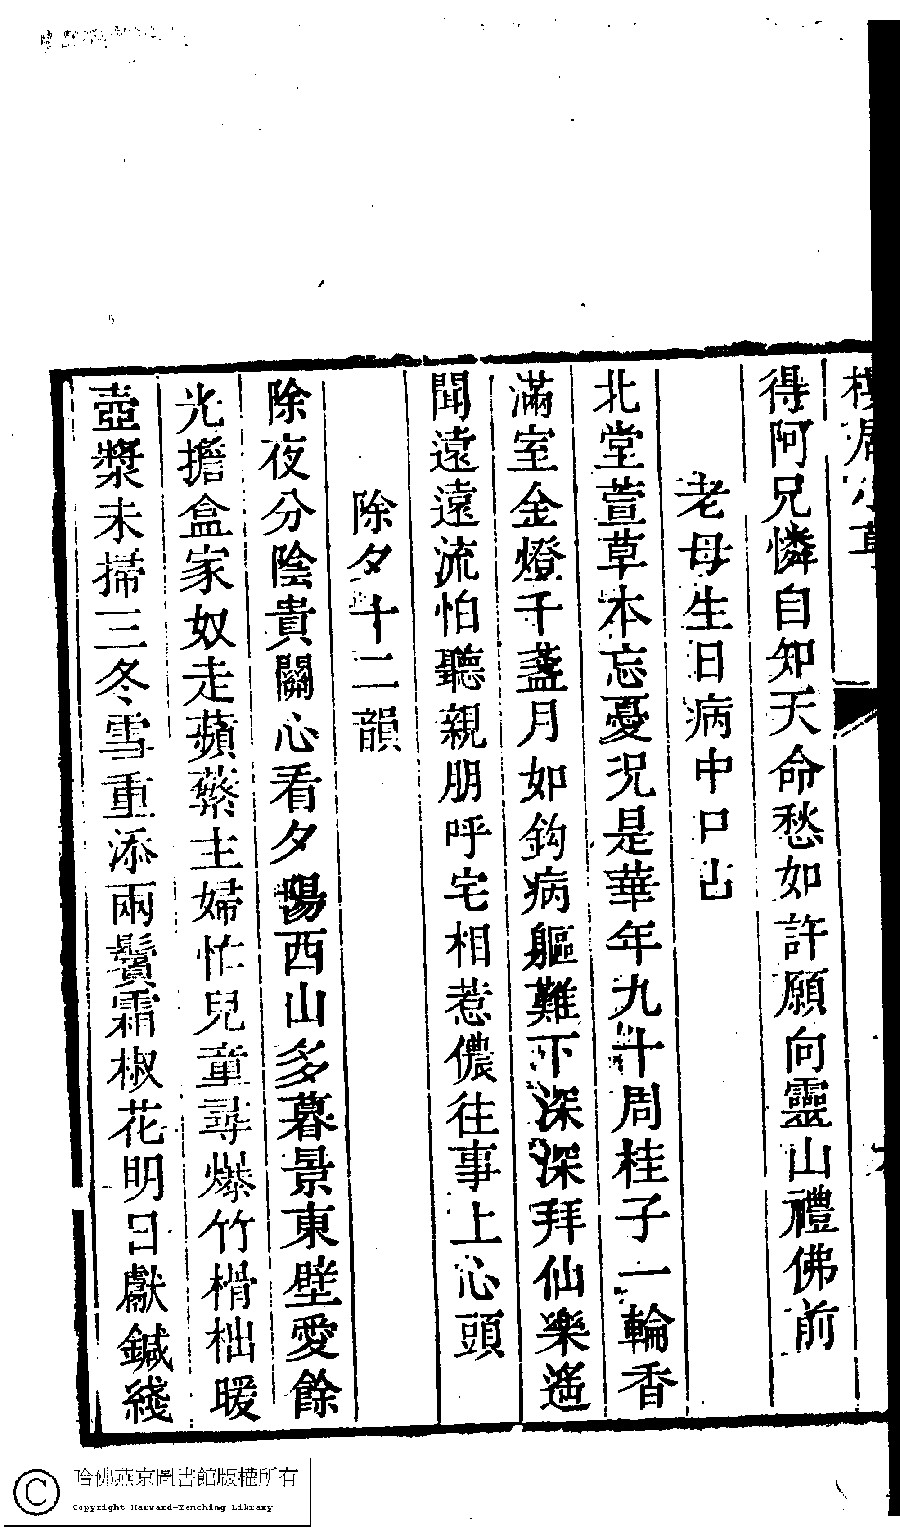 得阿兄憐自知天命愁如許願向靈山禮佛前
老母生日病中口占
北堂萱草本忘憂況是華年九十周桂子一輪香
滿室金燈千盞月如鈎病軀難下深深拜仙樂遙
聞遠遠流怕聽親朋呼宅相惹儂往事上心頭
除夕十二韻
除夜分陰貴關心看夕陽西山多暮景東壁愛餘
光擔盒家奴走蘋蘩主婦忙兒童尋爆竹榾柮暖
壺漿未掃三冬雪重添兩鬢霜椒花明日獻鍼綫
哈佛燕京圖書館版權所有
Copyright Harvard-Yenching Library